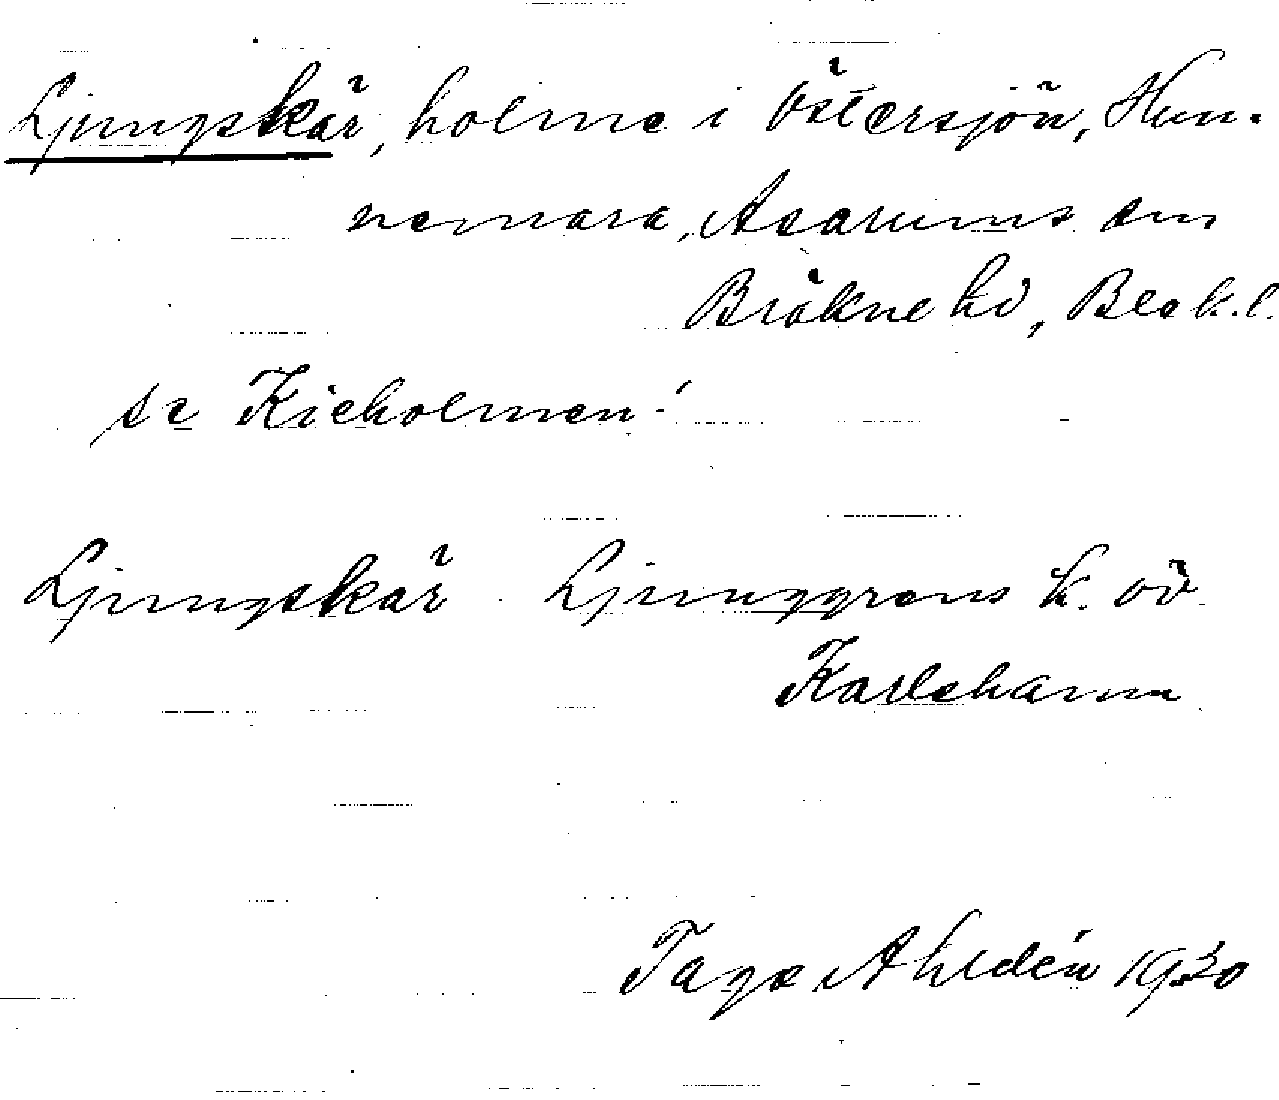 Ljungskär, holme i Östersjön, Hun-
nemara, Asarums sn
Bräkne hd, Blek. l.
se Kieholmen!
Ljungskär Ljunggrens k. öv
Karlshamn
Tage Ahldén 1930